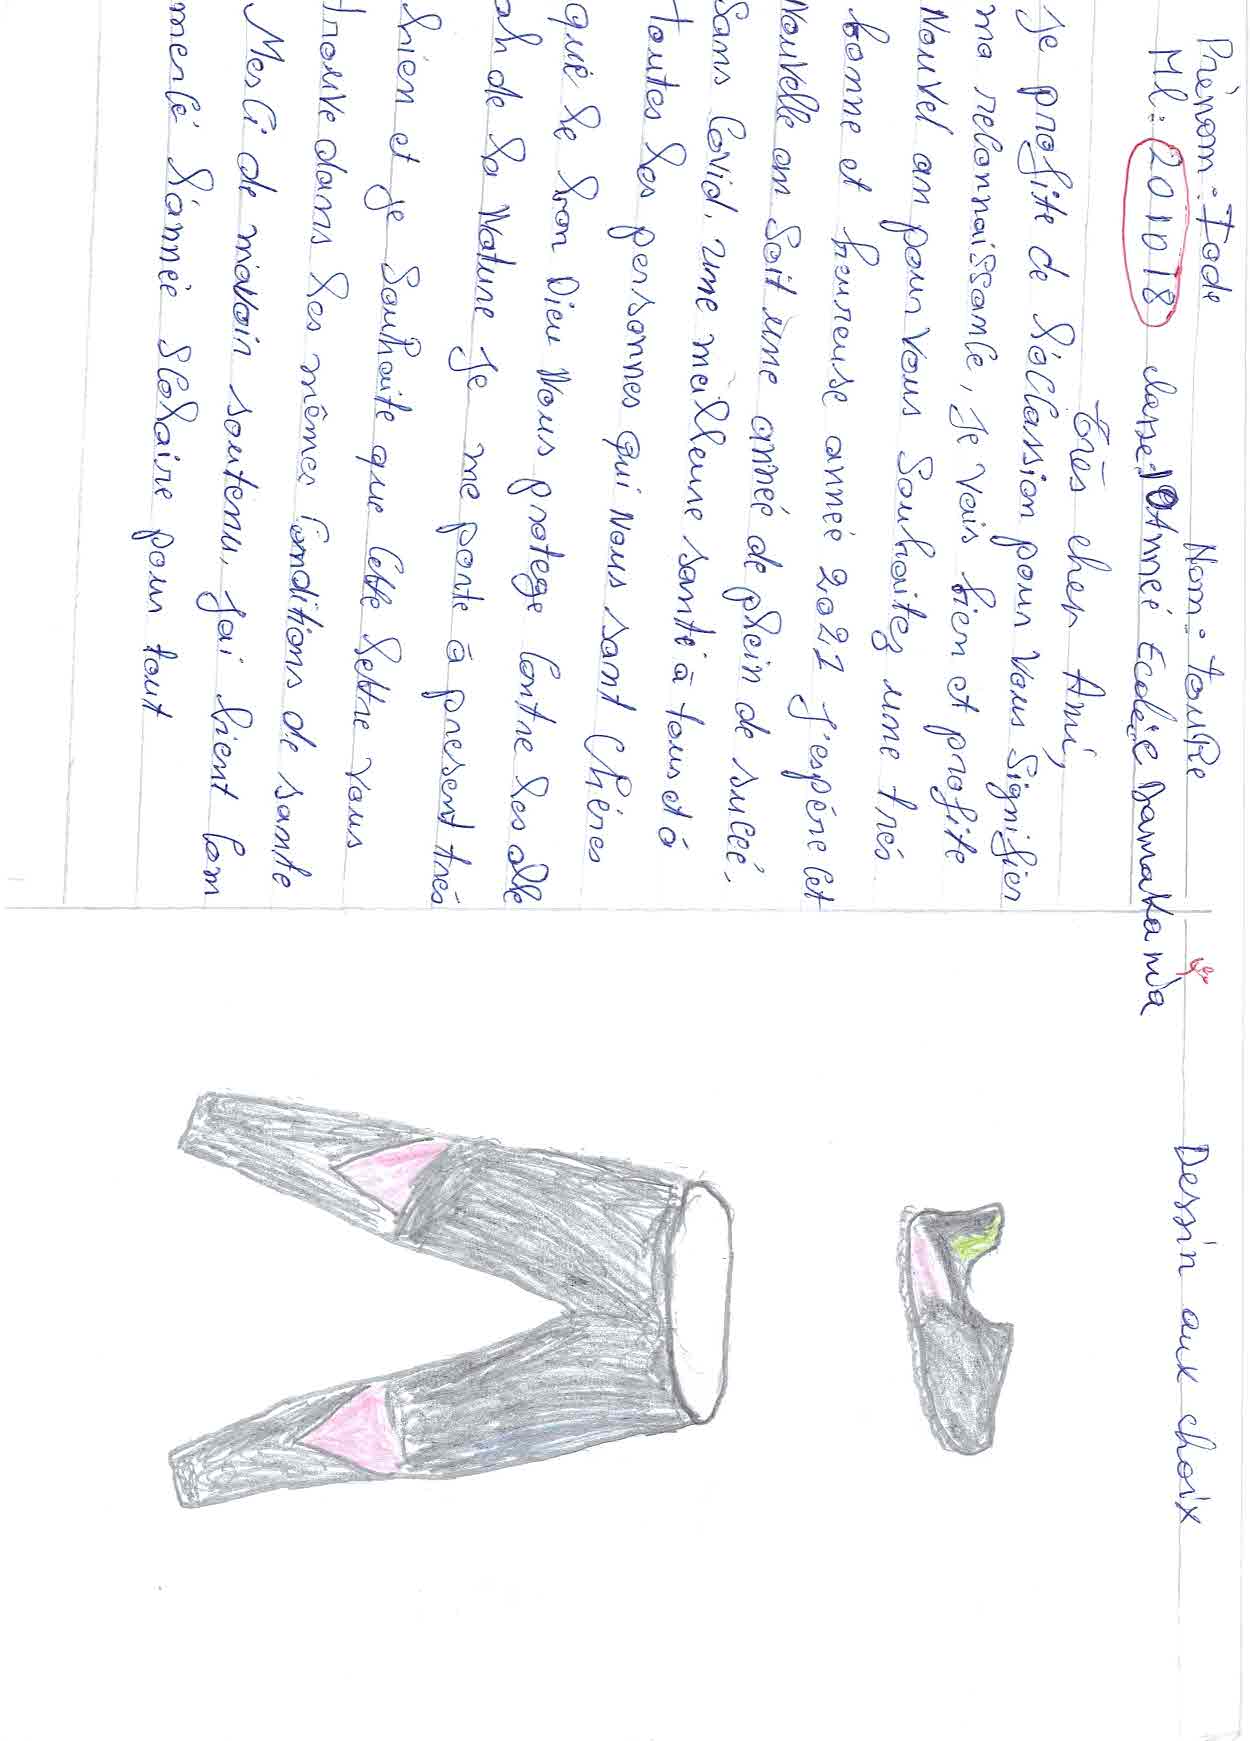 Prénom : Fode Nom : TOURE
ML: 201018 classe: 10 Année Ecole Damakania
très cher Ami,
je profite de l'occassion pour vous Signifier
ma reconnaissance, Je vais bien et profite
Nouvel an pour vous Souhaitez une très
bonne et heureuse année 2021 J'espére cet
Nouvelle an Soit une année de plein de succé,
sans Covid, une meilleure santé à tous et à
toutes les personnes qui nous sont Chéres
que le bon Dieu Nous protege Contre les alle
ah de la Nature Je me porte à present très
bien et je Souhaite que Cette lettre vous
trouve dans les mêmes Conditions de sante
Merci de m'avoir soutenu, j'ai bient Com
mencé l'année Scolaire pour tout
Dessin aux choix